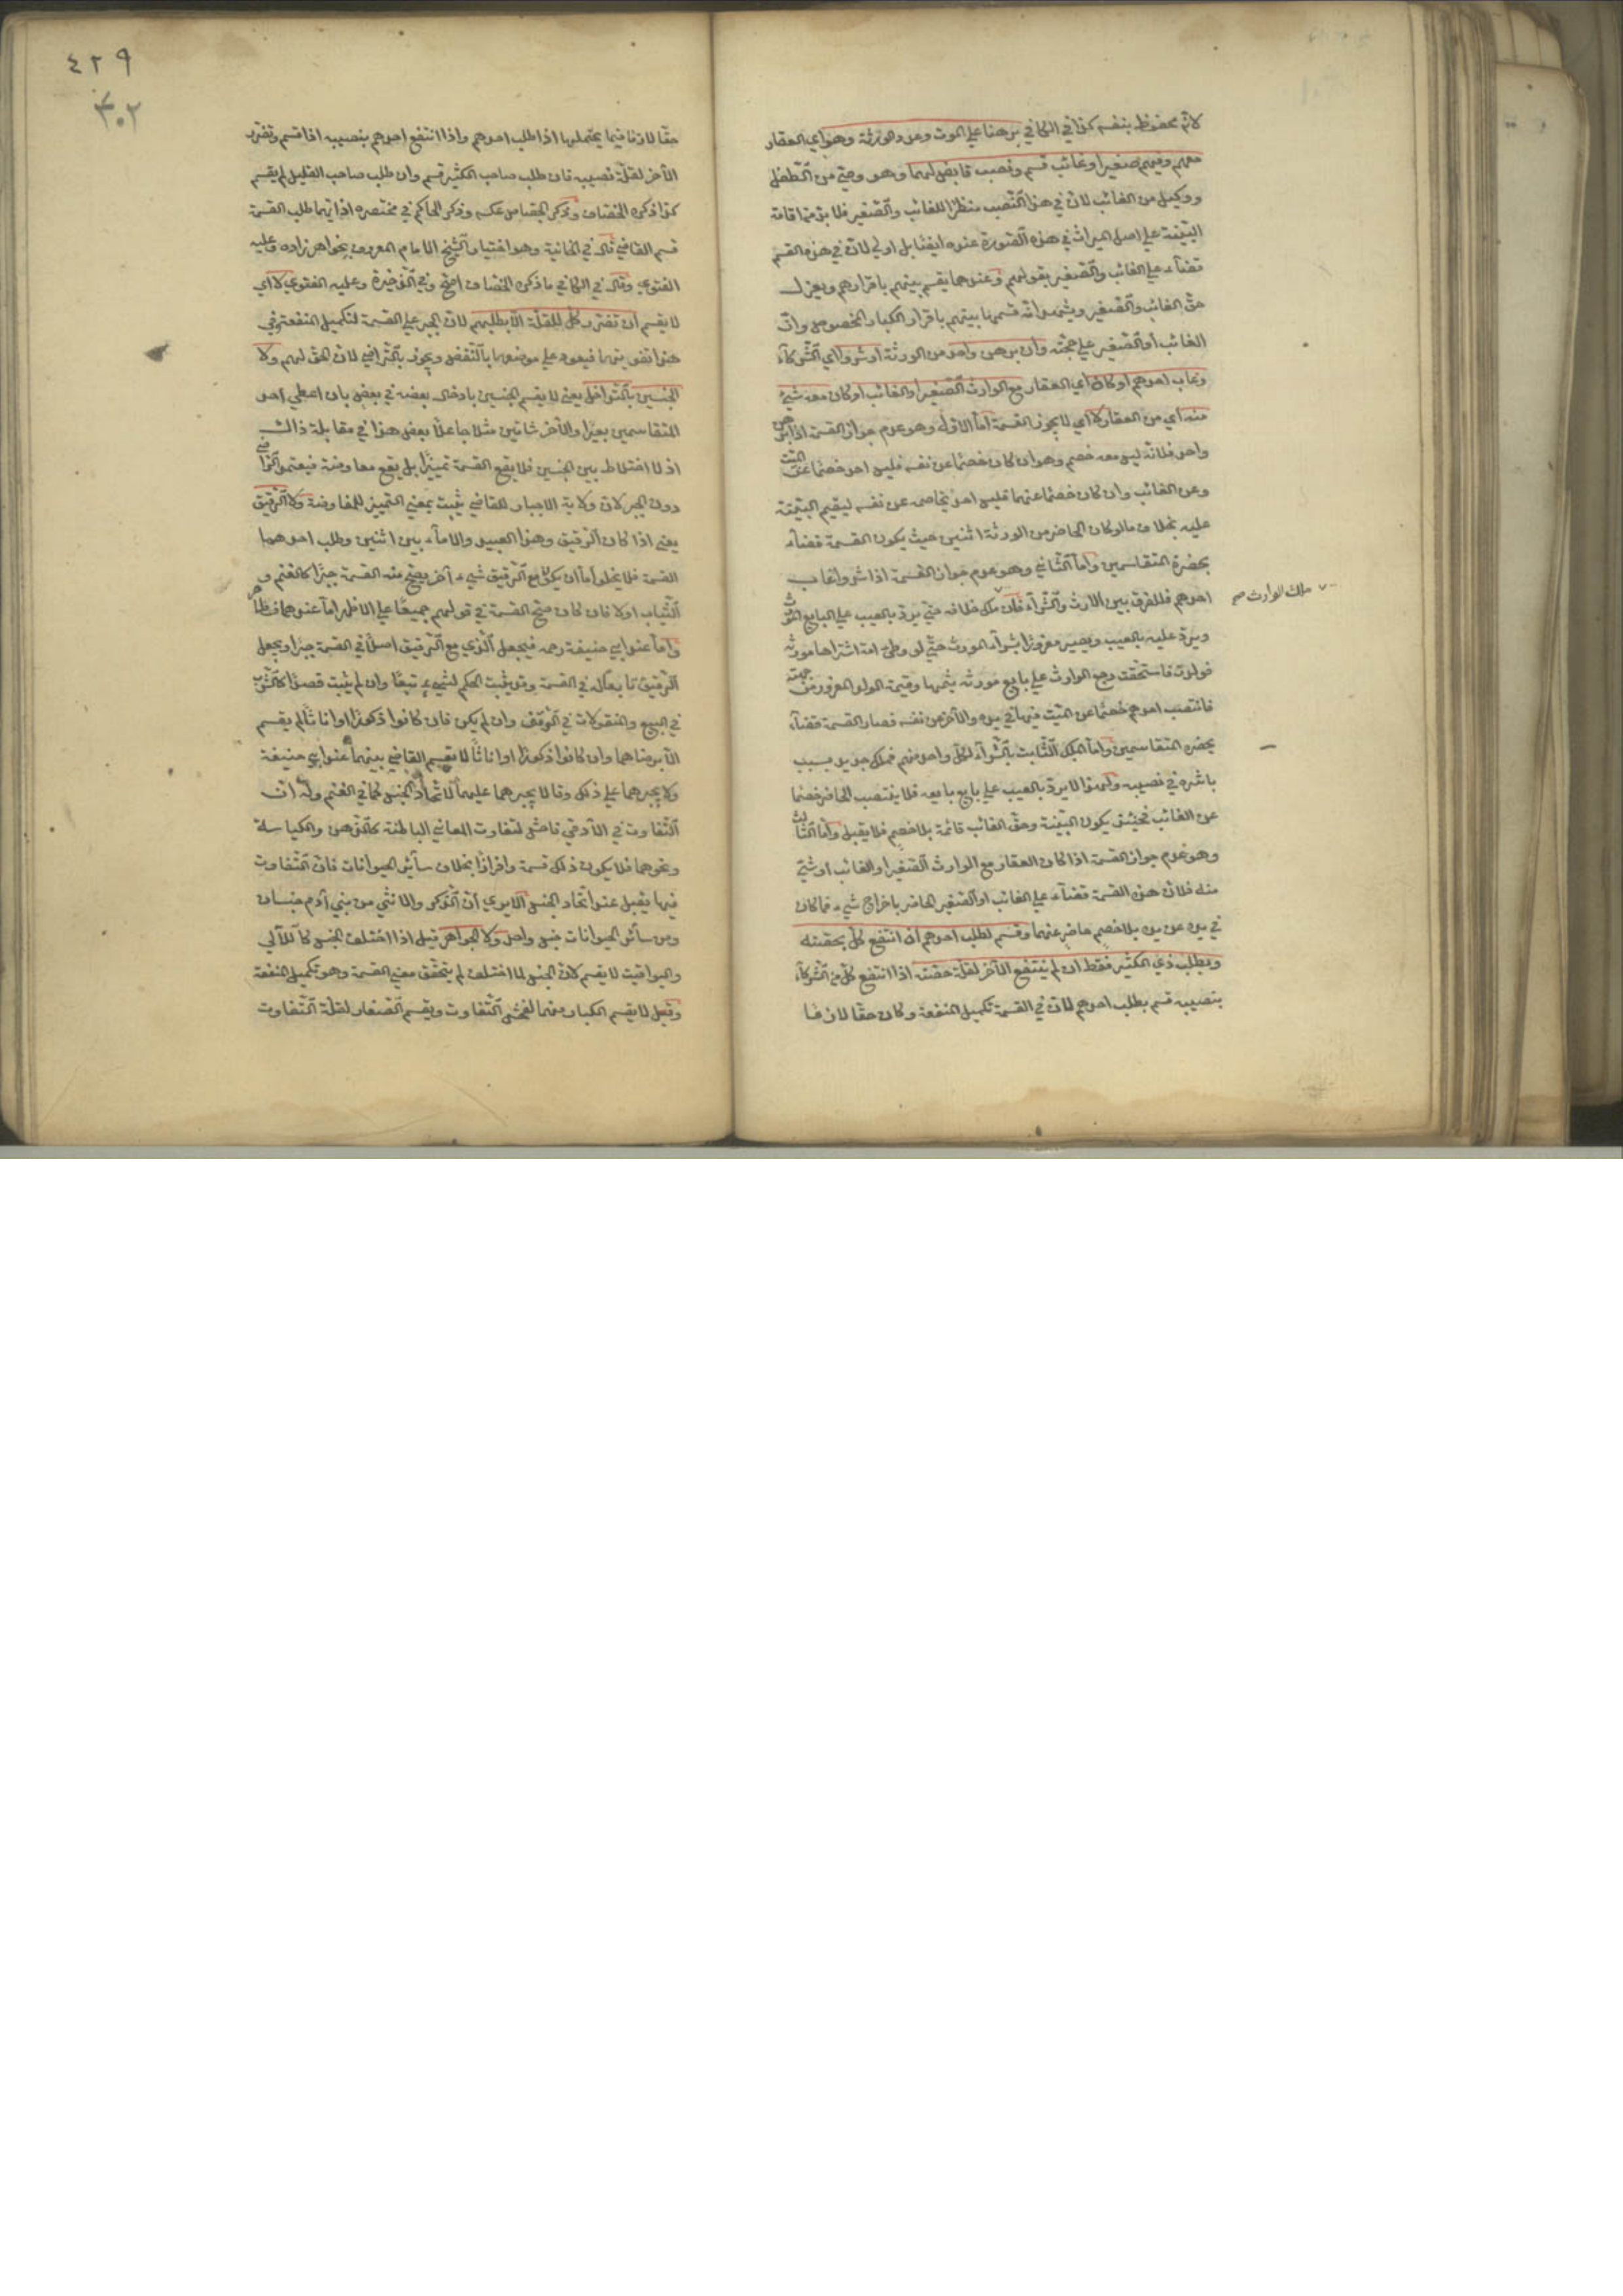 لانه محفوظ بنفسه كذا في الكافي برهنا على الموت وعدد الورثة وهو اي العقار
معهم وفيهم صغير او غائب قسم ونصب قابض لهما وهو وصي من الطفل
ووكيل من الغائب لان في هذا النصب نظرا للغائب والصغير فلا بد من اقامة
البينة على اصل الميراث في هذه الصورة عنده ايضا بل اولى لان في هذه القسم
قضاء على الغائب والصغير بقولهم وعندهما يقسم بينهم باقرارهم ويعزل
حق الغائب والصغير ويشهد انه قسمها بينهم باقرار الكبار الحضور وان
الغائب او الصغير على حجته وان برهن واحد من الورثة او شروا اي الشركاء
وغاب احدهم او كان اي العقار مع الوارث الصغير او الغائب او كان معه شيء
منه اي من العقار لا اي لا يجوز القسمة اما الاول وهو عدم جواز القسمة اذا برهن
واحد فلانه ليس معه خصم وهو ان كان خصما عن نفسه فليس احد خصما عن الميت
وعن الغائب وان كان خصما عنهما فليس احد يخاصمه عن نفسه ليقيم البينة
عليه بخلاف ما لو كان الحاضر من الورثة اثنين حيث يكون القسمة قضاء
بحضرة المتقاسمين واما الثاني وهو عدم جواز القسمة اذا شروا وغاب
احدهم فللفرق بين الارث والشراء فان ملك خلافه حتى يرد بالعيب على البايع المورث
ملك الوارث صح
ويرد عليه بالعيب ويصير مغرورا بشراء المورث حتى لو وطئ امة اشتراها مورثه
فولدت فاستحقت رجع الوارث على بايع مورثه بثمنها وقيمة الولد المغرور من جهته
فانتصب احدهم خصما عن الميت فيما في يده والآخر عن نفسه فصار القسمة قضاء
بحضرة المتقاسمين واما الملك الثابت بالشراء لكل واحد منهم فملك جديد بسبب
باشره في نصيبه ولهذا لا يرد بالعيب على بايع بايعه فلا ينتصب الحاضر خصما
عن الغائب فحينئذ يكون البينة وحق الغائب قائمة بلا خصم فلا يقبل واما الثالث
وهو عدم جواز القسمة اذا كان العقار مع الوارث الصغير او الغائب او شيء
منه فلان هذه القسمة قضاء على الغائب او الصغير الحاضر باخراج شيء مما كان
في يده عن يده بلا خصم حاضر عنهما وقسم لطلب احدهم ان انتفع كل بحصته
وبطلب ذي الكثير فقط ان لم ينتفع الآخر لقلة حصته اذا انتفع كل من الشركاء
بنصيبه قسم بطلب احدهم لان في القسمة تكميل المنفعة وكان حقا لازما
٤٢٩
٣٠٢
حقا لازما فيما يحتملها اذا طلب احدهم واذا انتفع احدهم بنصيبه اذا قسم وتضرر
الآخر لقلة نصيبه فان طلب صاحب الكثير قسم وان طلب صاحب القليل لم يقسم
كذا ذكره الخصاف وذكر الجصاص عكسه وذكر الحاكم في مختصره اذا ايهما طلب القسمة
قسم القاضي قال في الخانية وهو اختيار الشيخ الامام المعروف بخواهر زاده وعليه
الفتوى وقال في الكافي ما ذكره الخصاف اصح وفي الذخيرة وعليه الفتوى لا اي
لا يقسم ان تضرر كل للقلة الا بطلبهم لان الجبر على القسمة لتكميل المنفعة وفي
هذا تفويتها فيعود على موضوعها بالنقض ويجوز بالتراضي لان الحق لهم ولا
الجنسين بالتداخل يعني لا يقسم الجنسين بادخال بعضه في بعض بان اعطى احد
المتقاسمين بعيرا والآخر شاتين مثلا جاعلا بعض هذا في مقابلة ذاك
اذ لا اختلاط بين الجنسين فلا يقع القسمة تمييزا بل يقع معاوضة فيعتمد التراضي
دون الجبر لان ولاية الاجبار للقاضي يثبت بمعنى التمييز لا المعاوضة ولا الرقيق
يعني اذا كان الرقيق وهو العبيد والاماء بين اثنين وطلب احدهما
القسمة فلا يخلو اما ان يكون مع الرقيق شيء آخر يصح منه القسمة جبرا كالغنم و
الثياب اولا فان كان صح القسمة في قولهم جميعا على الاظهر اما عندهما فظاهر
واما عند ابي حنيفة رحمه فيجعل الذي مع الرقيق اصلا في القسمة جبرا ويجعل
الرقيق تابعا له في القسمة وقد يثبت الحكم لشيء تبعا وان لم يثبت قصدا كالشرب
في البيع والمنقولات في الوقف وان لم يكن فان كانوا ذكورا واناثا لم يقسم
الا برضاهما وان كانوا ذكورا او اناثا لا يقسم القاضي بينهما عند ابي حنيفة
ولا يجبرهما على ذلك وقالا يجبرهما عليها لاتحاد الجنس كما في الغنم وله ان
التفاوت في الآدمي فاحش لتفاوت المعاني الباطنة كالذهن والكياسة
ونحوهما فلا يكون ذلك قسمة وافرازا بخلاف سائر الحيوانات فان التفاوت
فيها يقل عند اتحاد الجنس الا يرى ان الذكر والانثى من بني آدم جنسان
ومن سائر الحيوانات جنس واحد ولا الجواهر قيل اذا اختلف الجنس كاللآلي
واليواقيت لا يقسم لان الجنس لما اختلف لم يتحقق معنى القسمة وهو تكميل المنفعة
وقيل لا يقسم الكبار منها لفحش التفاوت ويقسم الصغار لقلة التفاوت